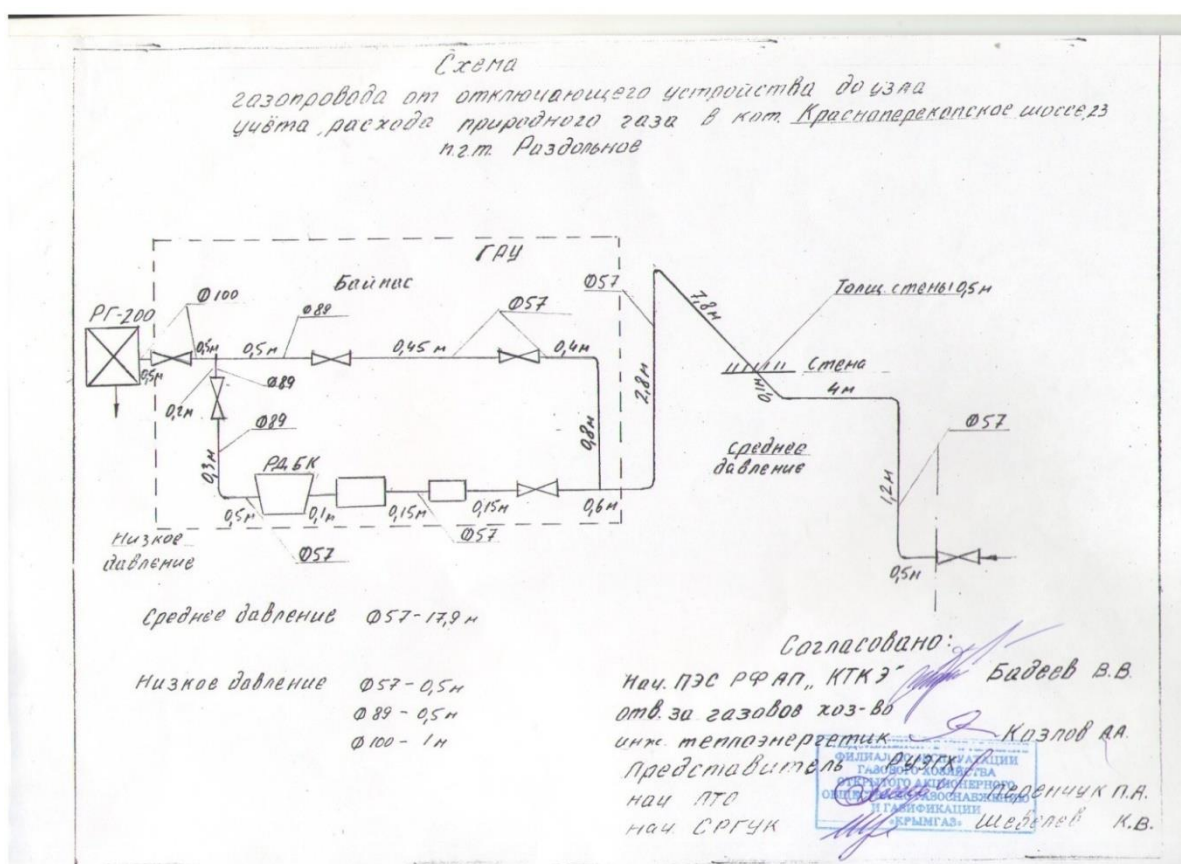 Схема
газопровода от отключающего устройства до узла
учёта расхода природного газа в кот. Красноперекопское шоссе,23
п.г.т. Раздольное
ГРУ
Байпас
РГ-200
Ф100
Ф89
Ф57
Ф57
Толщ. стены 0,5м
0,5м
0,5м
0,5м
0,45 м
0,4м
7,8м
Стена
Ф89
0,2м
2,8м
0,1м
4м
Ф89
0,3м
0,8м
Среднее
давление
Ф57
РДБК
1,2м
0,5м
0,1м
0,15м
0,15м
0,6м
Ф57
Ф57
0,5м
Низкое
давление
Среднее давление Ф57-17,9м
Низкое давление Ф57-0,5м
Ф89-0,5м
Ф100-1м
Согласовано:
Нач. ПЭС РФ АП „КТКЭ" Бадеев В.В.
отв. за газовое хоз-во
инж. теплоэнергетик Козлов А.А.
Представитель РУЭГХ
нач ПТО П.А.
нач. СРГУК Шевелев К.В.
ФИЛИАЛ ПО ЭКСПЛУАТАЦИИ
ГАЗОВОГО ХОЗЯЙСТВА
ОТКРЫТОГО АКЦИОНЕРНОГО
ОБЩЕСТВА ГАЗОСНАБЖЕНИЮ
И ГАЗИФИКАЦИИ
«КРЫМГАЗ»